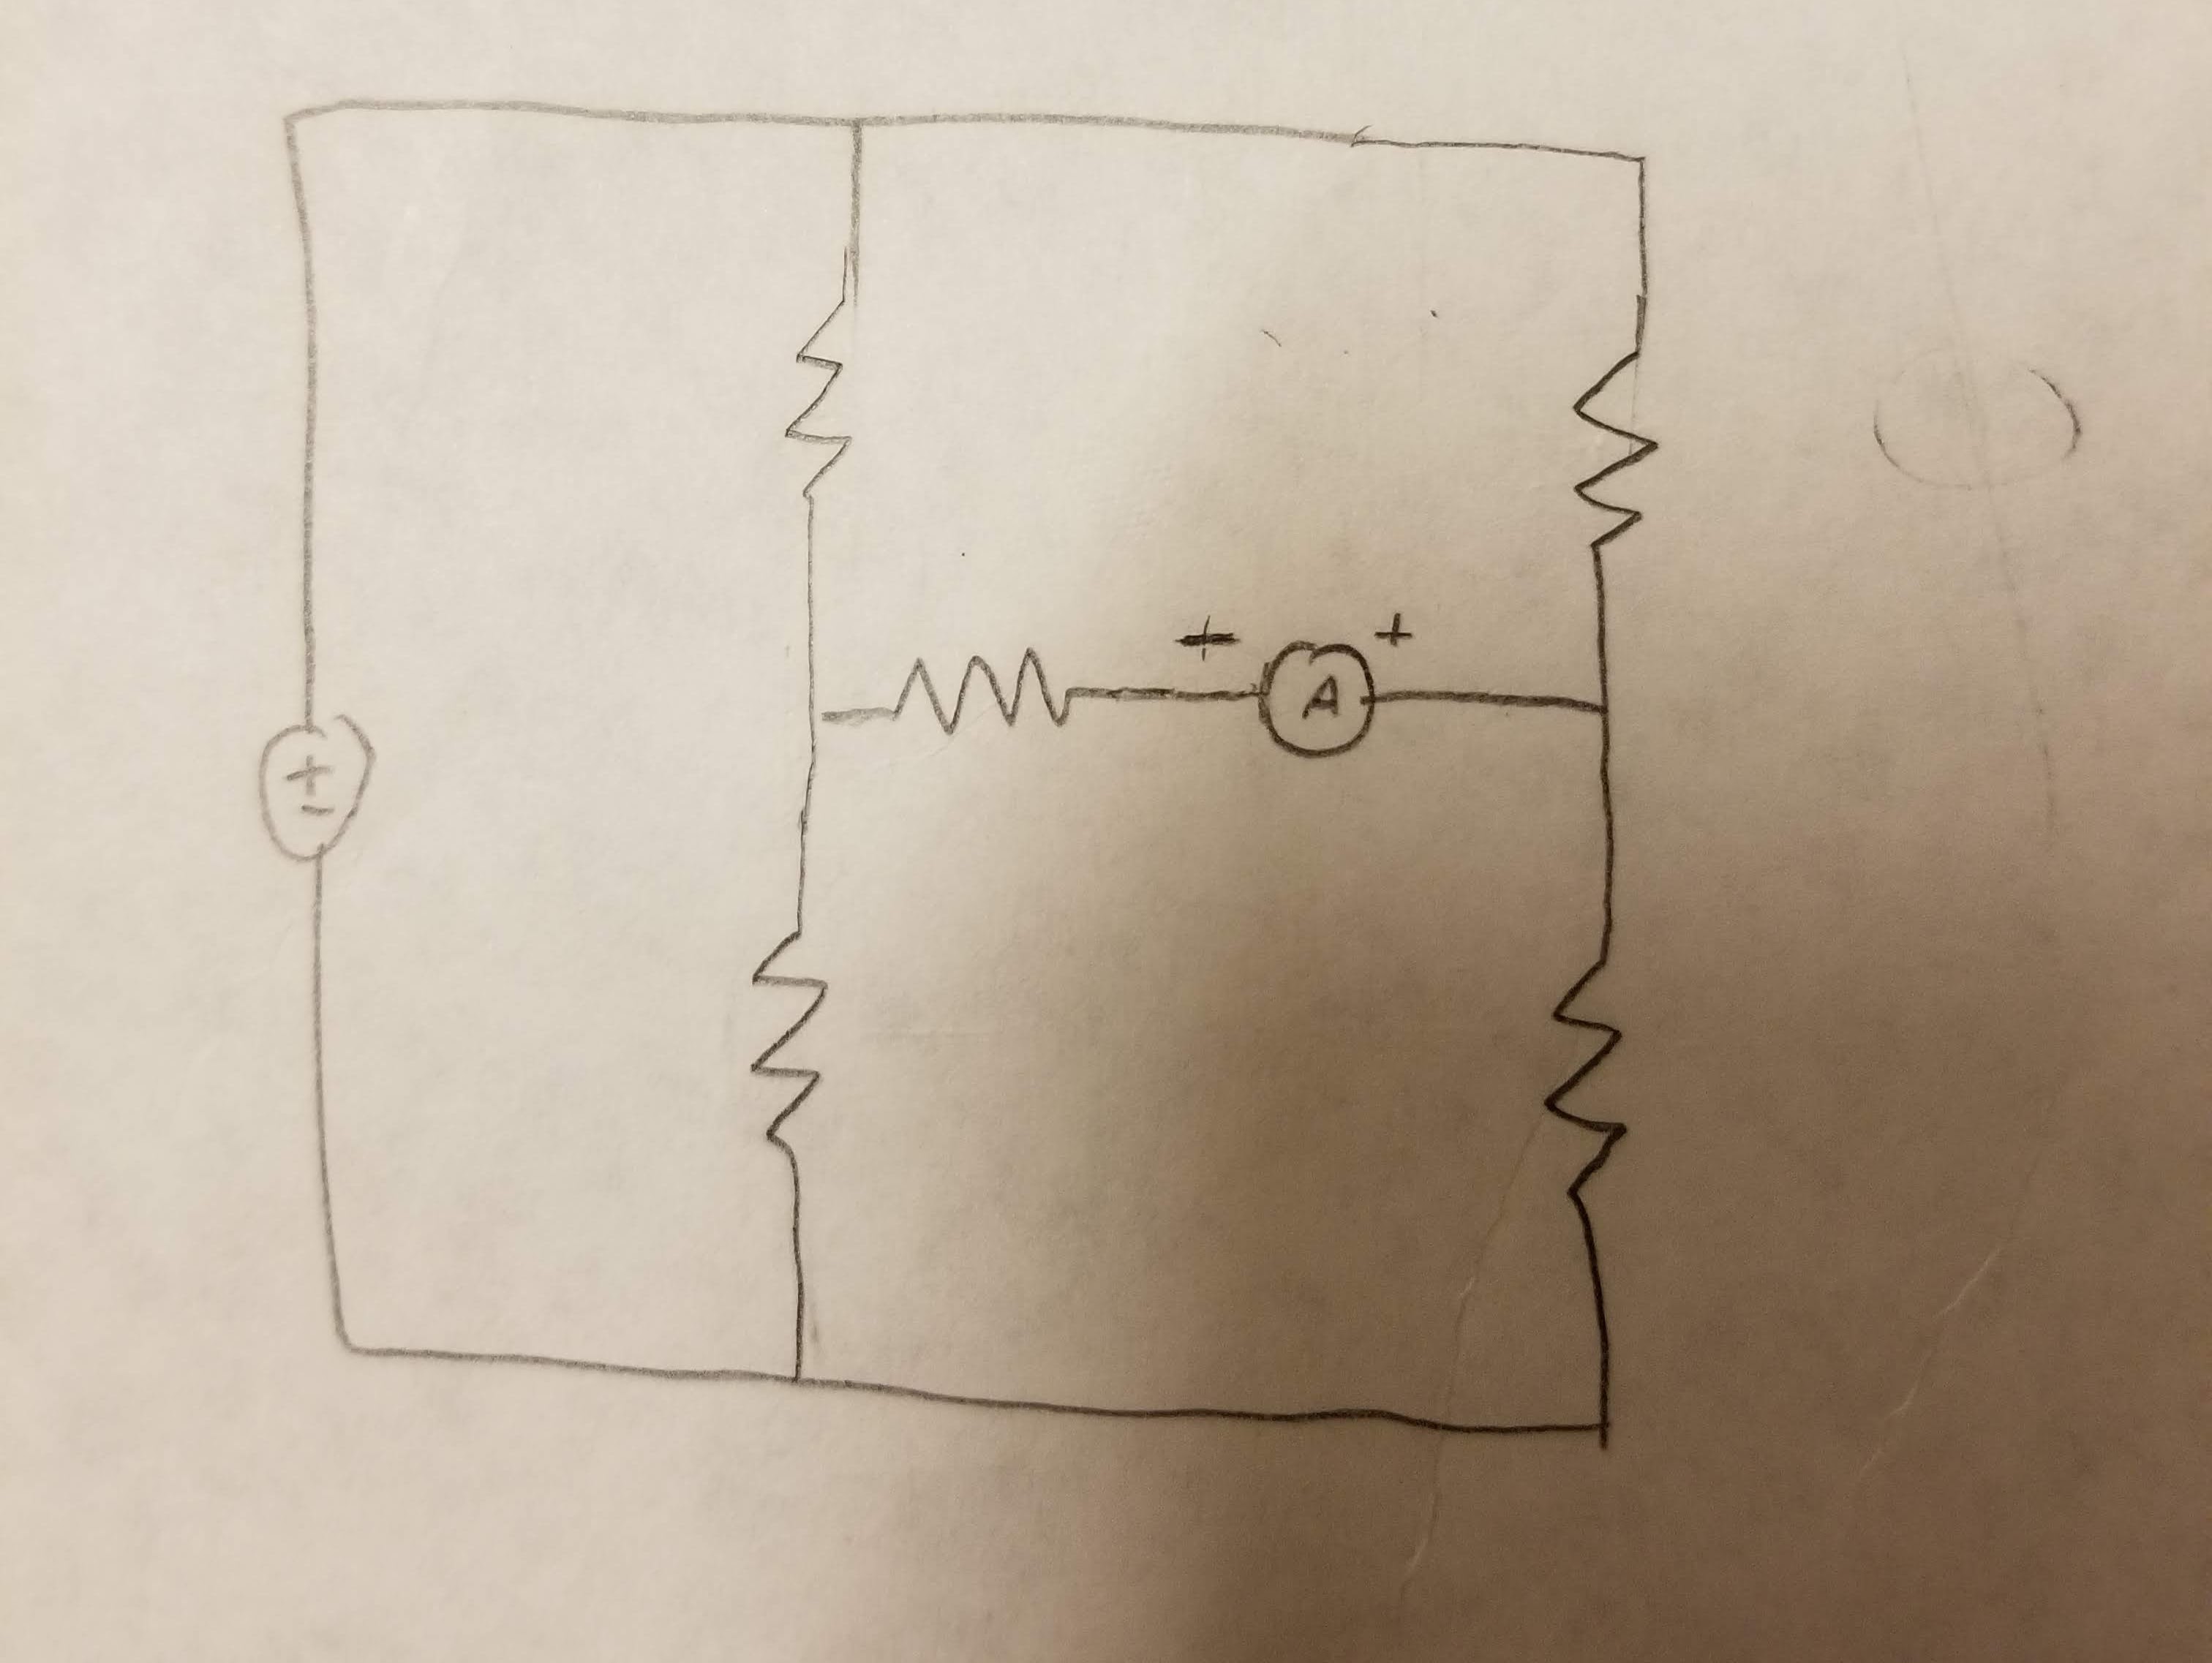 + +
A
+
-